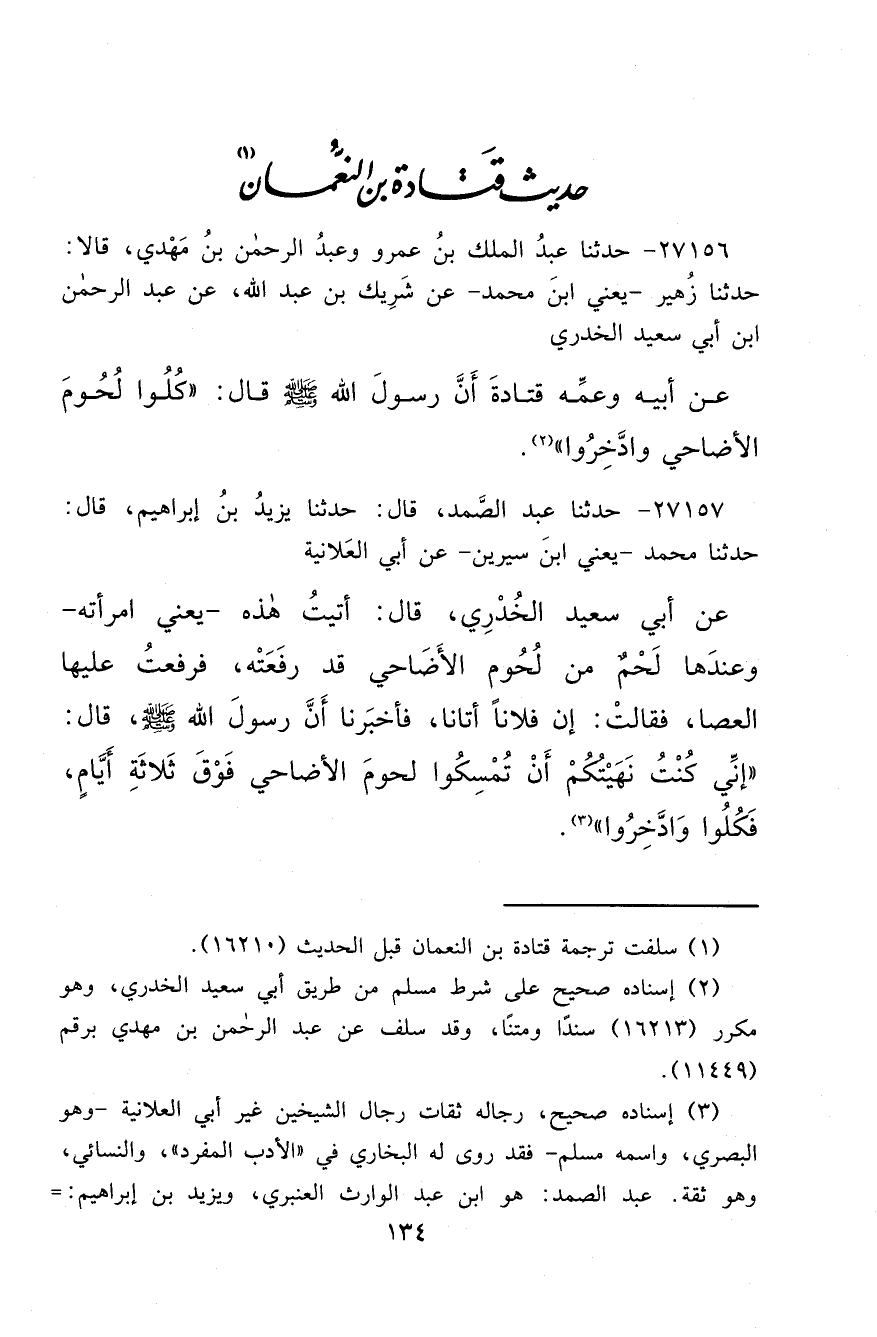 حديث قتادة بن النعمان(١)
٢٧١٥٦- حدثنا عبدُ الملك بنُ عمرو وعبدُ الرحمٰن بنُ مَهْدي، قالا:
حدثنا زُهير -يعني ابنَ محمد- عن شَرِيك بن عبد الله، عن عبد الرحمٰن
ابن أبي سعيد الخدري
عن أبيه وعمِّه قتادةَ أَنَّ رسولَ الله ﷺ قال: «كُلُوا لُحُومَ
الأضاحي وادَّخِرُوا»(٢).
٢٧١٥٧- حدثنا عبد الصَّمد، قال: حدثنا يزيدُ بنُ إبراهيم، قال:
حدثنا محمد -يعني ابنَ سيرين- عن أبي العَلانية
عن أبي سعيد الخُدْرِي، قال: أتيتُ هٰذه -يعني امرأته-
وعندَها لَحْمٌ من لُحُوم الأَضَاحي قد رفَعَتْه، فرفعتُ عليها
العصا، فقالتْ: إن فلاناً أتانا، فأخبَرنا أَنَّ رسولَ الله ﷺ، قال:
«إنِّي كُنْتُ نَهَيْتُكُمْ أَنْ تُمْسِكُوا لحومَ الأضاحي فَوْقَ ثَلاثَةِ أَيَّامٍ،
فَكُلُوا وَادَّخِرُوا»(٣).
(١) سلفت ترجمة قتادة بن النعمان قبل الحديث (١٦٢١٠).
(٢) إسناده صحيح على شرط مسلم من طريق أبي سعيد الخدري، وهو
مكرر (١٦٢١٣) سندًا ومتنًا، وقد سلف عن عبد الرحٰمن بن مهدي برقم
(١١٤٤٩).
(٣) إسناده صحيح، رجاله ثقات رجال الشيخين غير أبي العلانية -وهو
البصري، واسمه مسلم- فقد روى له البخاري في «الأدب المفرد»، والنسائي،
وهو ثقة. عبد الصمد: هو ابن عبد الوارث العنبري، ويزيد بن إبراهيم: =
١٣٤